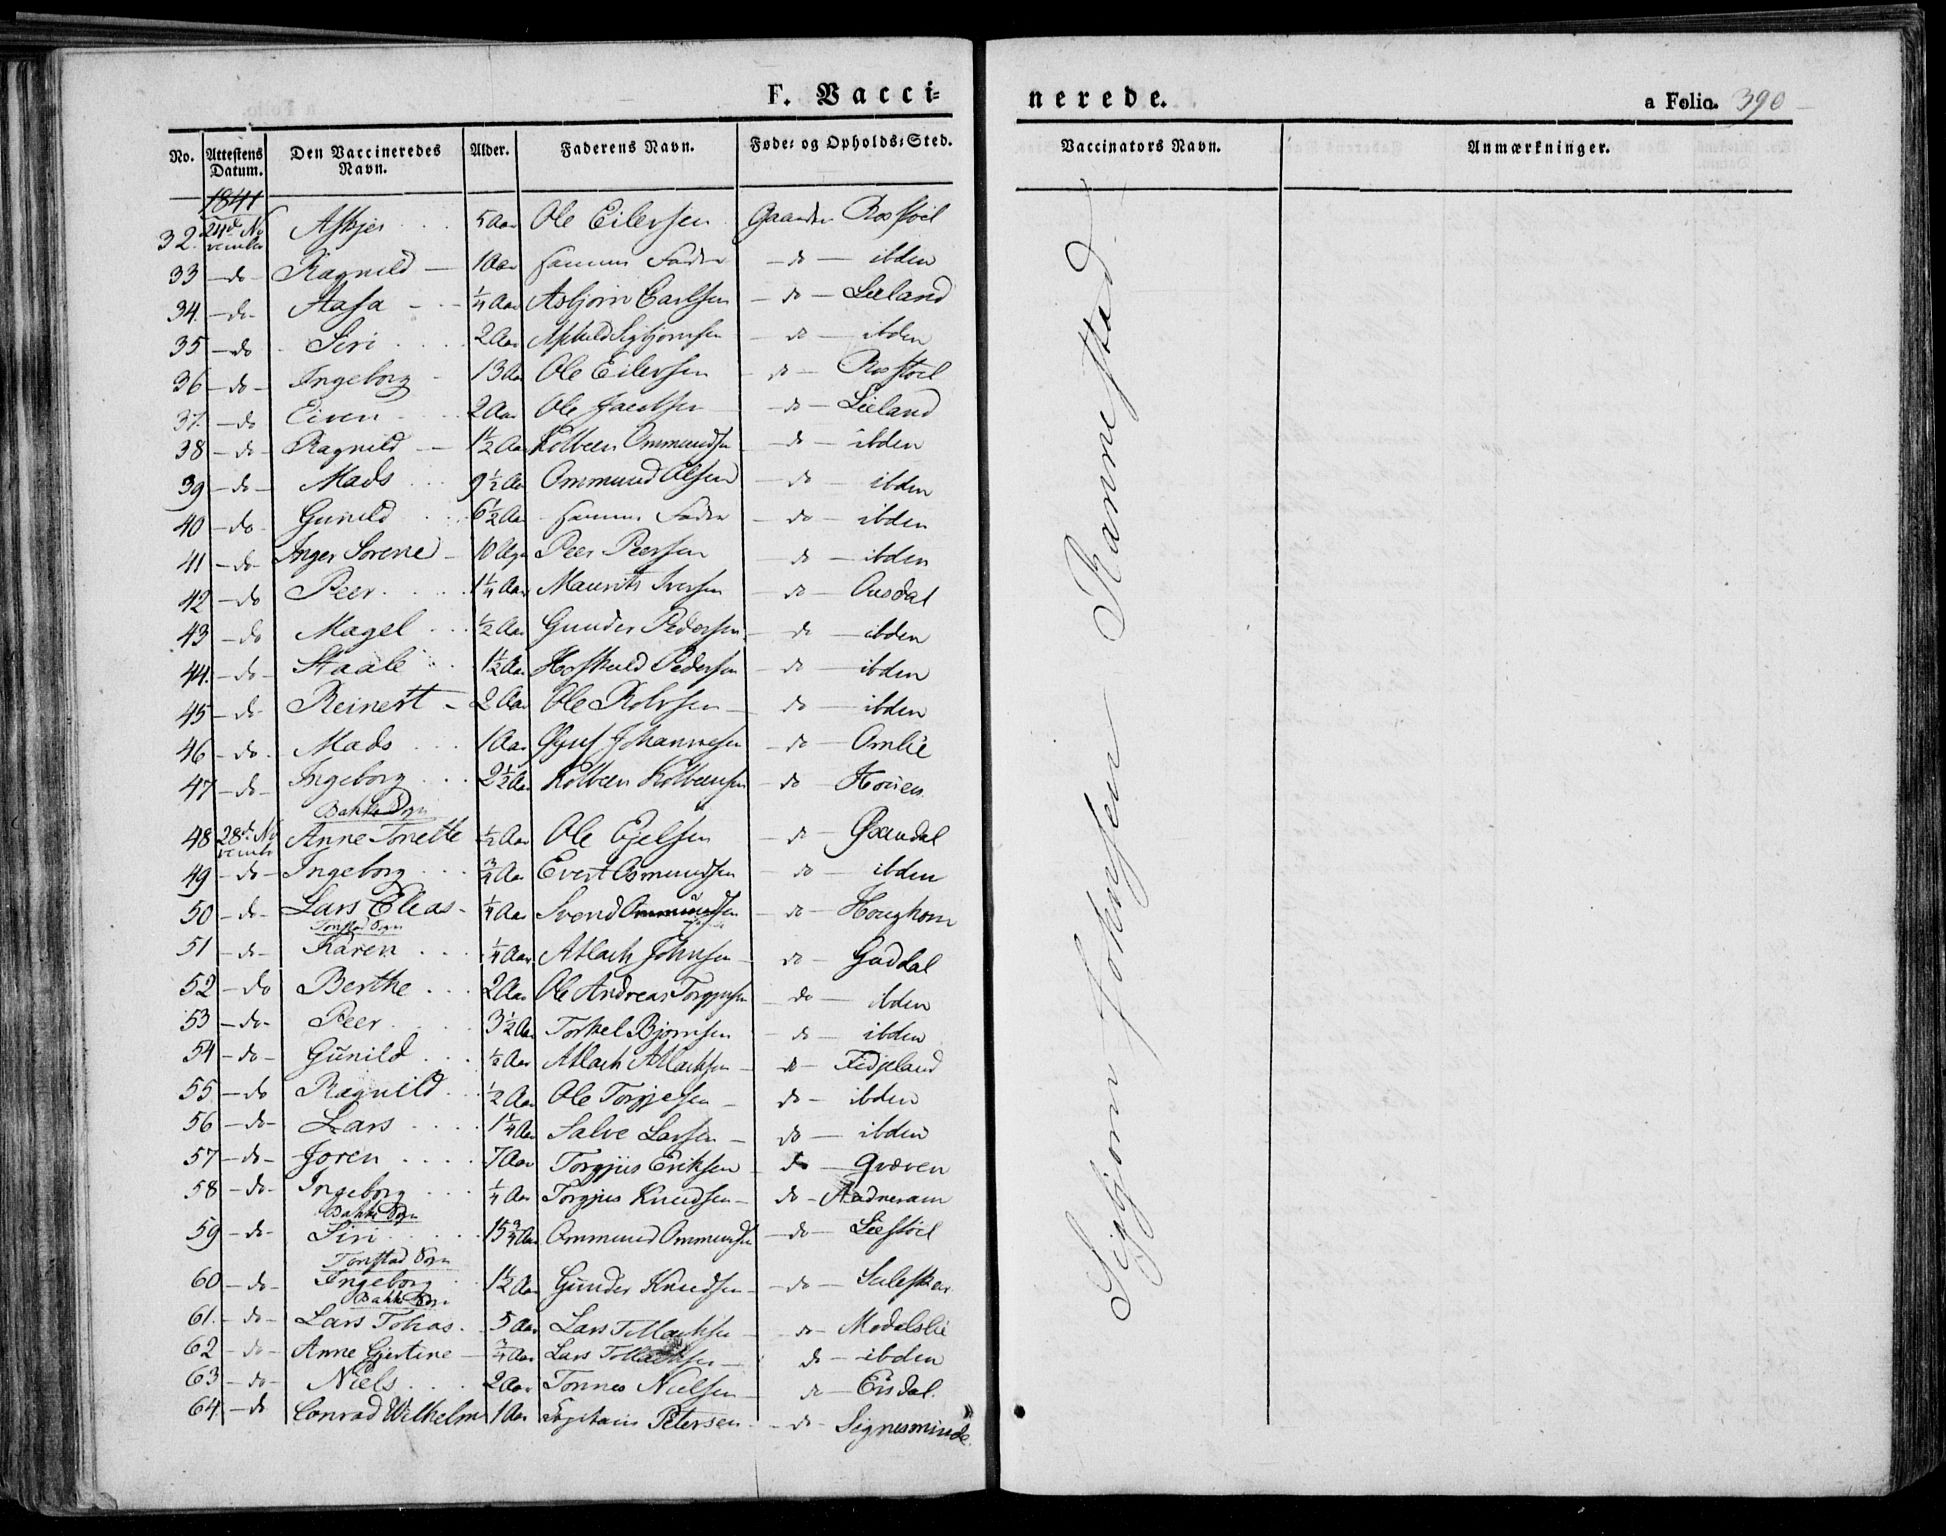 F. Vacci=
nerede.
a Folio. 390
No. Attestens Datum. Den Vaccineredes Navn. Alder. Faderens Navn. Føde= og Opholds=Sted.
Vaccinators Navn. Anmærkninger.
1841
32. 24de November Askjer 5 Aar Ole Eilersen Gaarden Rosstøel
33 - do - Ragnild 1 Aar samme Fader - do - ibden
34. - do - Aasa 1/4 Aar Asbjørn Carlsen - do - Lieland
35 - do Siri 2 Aar Sigbjørnsen - do - ibden
36 - do - Ingeborg 13 Aar Ole Eilersen - do - Rosstøel
37. - do Eiven 2 Aar Ole Jacobsen - do - Lieland
38 - do - Ragnild 1 1/2 Aar Kolbeen Ommundsen - do - ibden
39 - do - Mads 9 1/2 Aar Ommund Olsen - do - ibden
40 - do - Gunild 6 1/2 Aar samme Fader - do - ibden
41 - do - Inger Sørene 10 Uger Peer Peersen - do - ibden
42 - do Peer 1 1/4 Aar Maurits Iversen - do - Ousdal
43 - do Magel 1/2 Aar Gunder Pedersen - do - ibden
44. - do - Staale 1 1/2 Aar Hoskuld Pedersen - do - ibden
45 - do - Reinert 2 Aar Ole Rolvsen - do - ibden
46 - do - Mads 1 Aar Johannesen - do - Omlie
47 - do - Ingeborg 2 1/2 Aar Kolbeen Kolbeensen do - Houen
Bakke Sogn
48 28de November Anne Tonette 1/2 Aar Ole Ejelsen do - Øxendal
49 - do - Ingeborg 3/4 Aar Evert Osmundsen - do - ibden
50 - do - Lars Elias 1/4 Aar Svend - do - Houghom
Tonstad Sogn
51 - do - Karen 1/4 Aar Atlach Johnsen - do - Gaddal
52 - do Berthe 2 Aar Ole Andreas Torgjusen - do - ibden
53 - do - Peer 3 1/2 Aar Torkel Bjørnsen - do - ibden
54 - do - Gunild 1/2 Aar Atlach Atlachsen - do - Fidjeland
55 - do Ragnild 1/2 Aar Ole Torgjesen - do - ibden
56 - do - Lars 1 1/4 Aar Salve Larsen - do - ibden
57 - do - Joren 7 Aar Torgjus Eriksen - do - Qvæven
58 - do - Ingeborg 1/4 Aar Torgjus Knudsen - do - Aadneram
Bakke Sogn
59 - do - Siri 15 3/4 Aar Ommund Ommundsen - do - Liestøel
Tonstad Sogn
60 - do - Ingeborg 1 1/2 Aar Gunder Knudsen - do - Suleskar
Bakke Sogn
61. - do - Lars Tobias 5 Aar Lars Tollachsen - do - Modalslie
62 - do - Anne Gjertine 3/4 Aar Lars Tollachsen - do - ibden
63 - do - Niels 2 Aar Tønnes Nielsen - do - Eisdal
64 - do Conrad Wilhelm 1 Aar Capitain Petersen - do - Signesminde
Sigbjørn Johnsen Rannestad